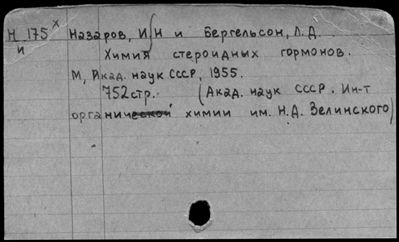 Н 175 х Назаров, И Н и Бергельсон, Л.Д.
и Химия стероидных гормонов.
М, Акад. наук СССР, 1955.
752 стр. (Акад. наук СССР. Ин-т
органической химии им. Н.Д. Зелинского)